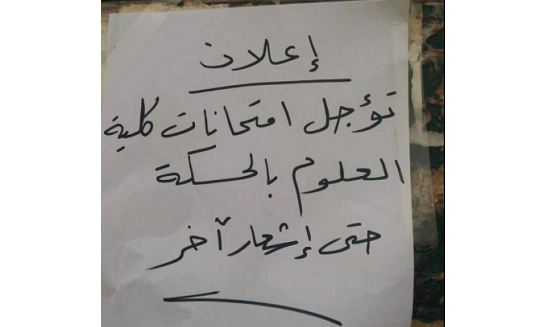 إعلان
تؤجل امتحانات كلية
العلوم بالحسكة
حتى إشعار آخر